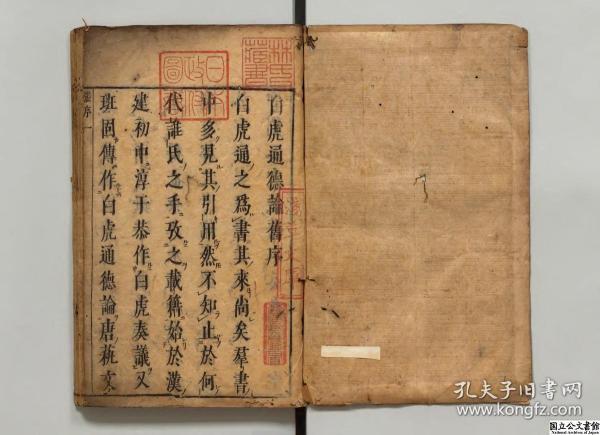 白虎通德論舊序
白虎通之爲書其來尚矣羣書
中多見其引用然不知止於何
代誰氏之手攷之載籍始於漢
建初中淳于恭作白虎奏議又
班固傳作白虎通德論唐藝文
序一
日本
政府
圖書
孔夫子旧书网
www.kongfz.com
国立公文書館
National Archives of Japan